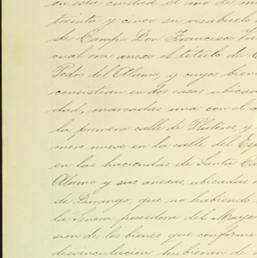 en esta ciudad el año de mil
treinta y cinco su
de Campo Don Francisco
cual era anexo el título de C
Pedro del Alamo, y cuyos bienes
consistian en dos casas ubicada
dad, marcadas una con el
la primera calle de Plateros, y
mero nueve en la calle del Esp
en las haciendas de Santa Ca
Alamo y sus anexas, ubicadas
de Durango, que no habiendo
la Señora poseedora del Mayor
sion de los bienes que conforme
desvinculacion hubieron de